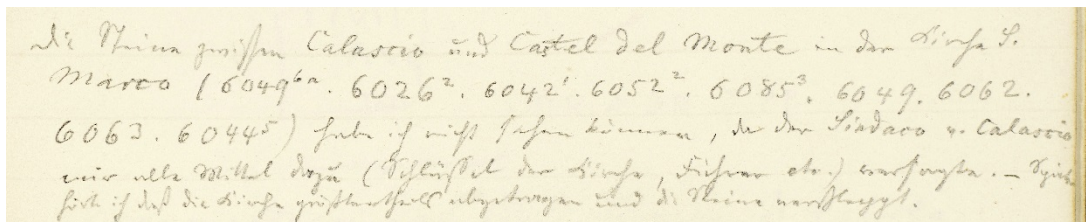 Die Steine zwischen Calascio und Castel del Monte in der Kirche S.
Marco (6049⁶ᵃ. 6026². 6042¹. 6052². 6085³. 6049. 6062.
6063. 6044⁵) habe ich nicht sehen können, da der Sindaco v. Calascio
mir alle Mittel dazu (Schlüssel der Kirche, Führer etc.) versagte. – Später
hört ich daß die Kirche größtentheils abgetragen und die Steine verschleppt.